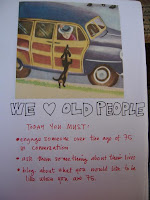 WE ♡ OLD PEOPLE
TODAY YOU MUST:
• engage someone over the age of 75
in conversation
• ask them something about their lives
• blog about what you would like to be
like when you are 75.